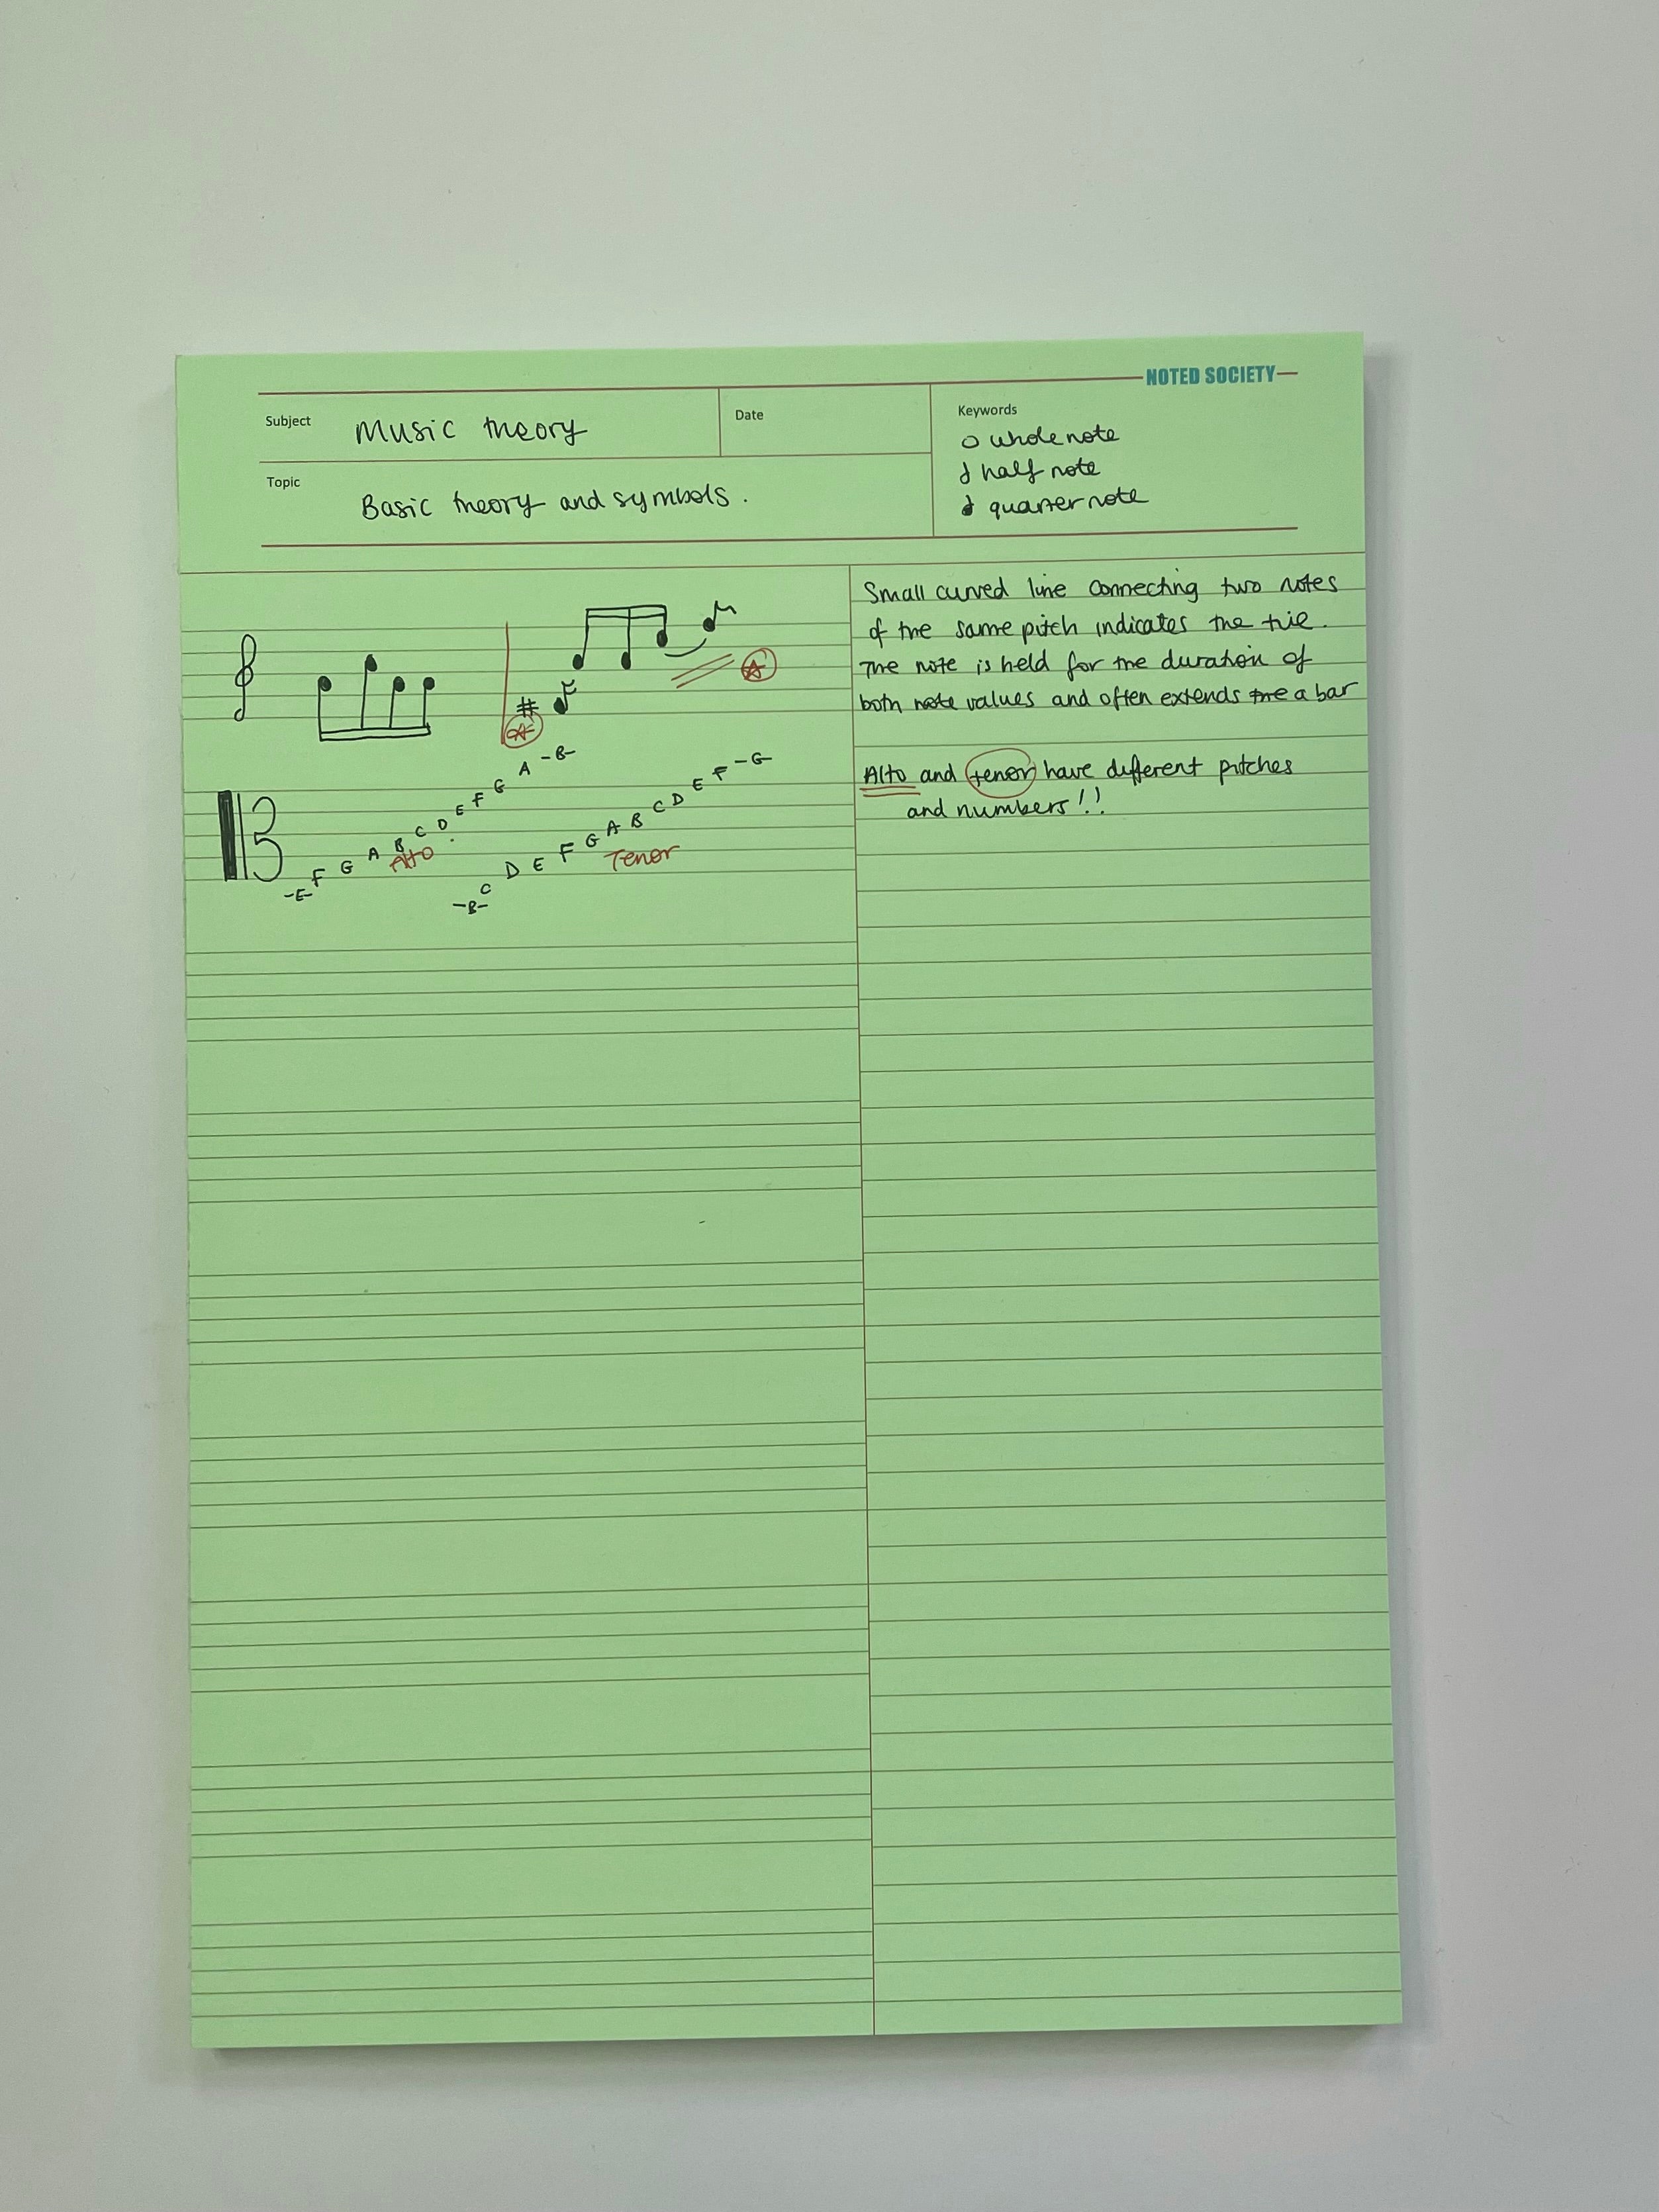 NOTED SOCIETY
Subject Music theory
Date
Keywords
whole note
half note
quarter note
Topic Basic theory and symbols.
Small curved line connecting two notes
of the same pitch indicates the tie.
The note is held for the duration of
both note values and often extends the a bar
Alto and tenor have different pitches
and numbers!!
-E- F G A B C D E F G A -B-
Alto
-B- C D E F G A B C D E F -G-
Tenor